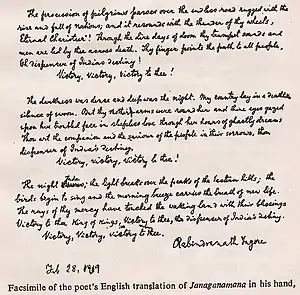 The procession of pilgrims passes over the endless road rugged with the
rise and fall of nations; and it resounds with the thunder of thy wheels,
Eternal Charioteer! Through the dire days of doom thy trumpet sounds and
men are led by thee across death. Thy finger points the path to all people,
Oh dispenser of India's destiny!
Victory, Victory, Victory to thee!
The darkness was dense and deep was the night. My country lay in a deathlike
silence of swoon. But thy mother arms were round her and thine eyes gazed
upon her troubled face in sleepless love through her hours of ghastly dreams
Thou art the companion and the saviour of the people in their sorrows, thou
dispenser of India's destiny.
Victory, victory, victory to thee!
The night fades; the light breaks over the peaks of the Eastern hills; the
birds begin to sing and the morning breeze carries the breath of new life.
The rays of thy mercy have touched the waking land with their blessings
Victory to the King of Kings, Victory to thee, the dispenser of India's destiny.
Victory, Victory, Victory to thee.
Rabindranath Tagore
Feb 28, 1919
Facsimile of the poet's English translation of Janaganamana in his hand,